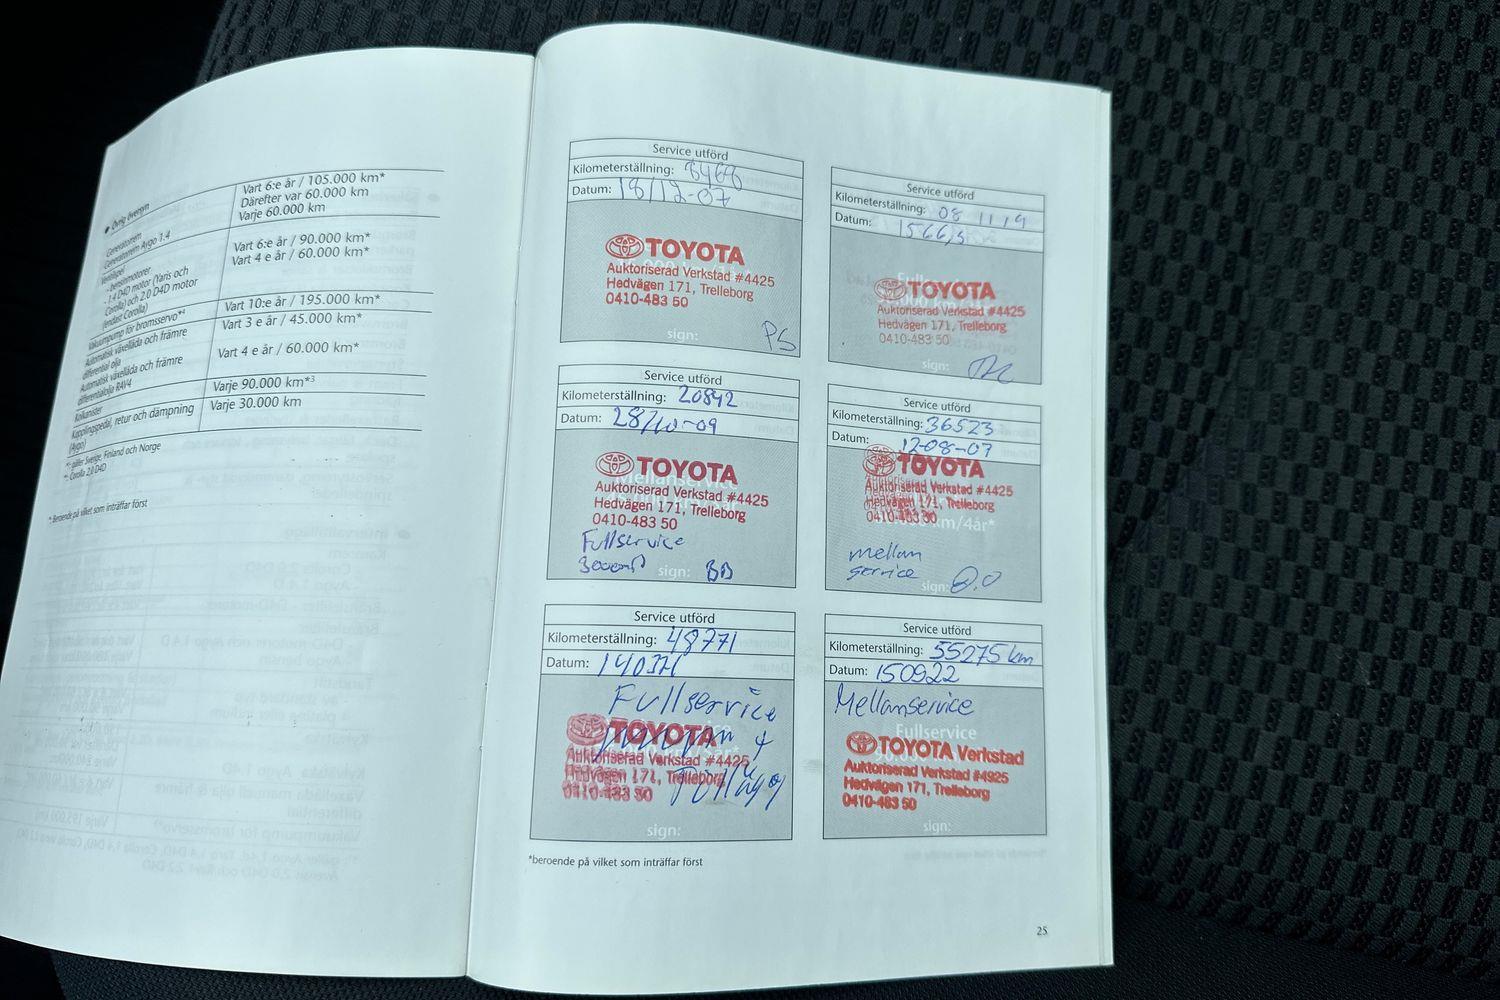 ● Övrig översyn
Generatorrem
Vart 6:e år / 105.000 km*
Därefter var 60.000 km
Generatorrem Aygo 1.4
Varje 60.000 km
Ventilspel
- bensinmotorer
Vart 6:e år / 90.000 km*
- 1.4 D4D motor (Yaris och
Corolla) och 2.0 D4D motor
(endast Corolla)
Vart 4 e år / 60.000 km*
Vakuumpump för bromsservo*⁴
Vart 10:e år / 195.000 km*
Automatisk växellåda och främre
differential olja
Vart 3 e år / 45.000 km*
Automatisk växellåda och främre
differentialolja RAV4
Vart 4 e år / 60.000 km*
Kolkanister
Varje 90.000 km*³
Kopplingspedal, retur och dämpning
(Aygo)
Varje 30.000 km
gäller Sverige, Finland och Norge
Corolla 2.0 D4D
* Beroende på vilket som inträffar först
Service utförd
Kilometerställning:
Datum: 18/12-07
TOYOTA
Auktoriserad Verkstad #4425
Hedvägen 171, Trelleborg
0410-483 50
sign: PS
Service utförd
Kilometerställning: 08 11 19
Datum:
Fullservice
TOYOTA
Auktoriserad Verkstad #4425
Hedvägen 171, Trelleborg
0410-483 50
sign:
Service utförd
Kilometerställning: 20842
Datum: 28/10-09
Mellanservice
TOYOTA
Auktoriserad Verkstad #4425
Hedvägen 171, Trelleborg
0410-483 50
Fullservice
sign: BB
Service utförd
Kilometerställning: 36523
Datum: 12-08-07
TOYOTA
Auktoriserad Verkstad #4425
Hedvägen 171, Trelleborg
0410-483 50
km/4år*
mellan
service
sign:
Service utförd
Kilometerställning: 48771
Datum:
Fullservice
TOYOTA
Auktoriserad Verkstad #4425
Hedvägen 171, Trelleborg
0410-483 50
sign:
Service utförd
Kilometerställning: 55275 km
Datum: 150922
Mellanservice
Fullservice
TOYOTA Verkstad
Auktoriserad Verkstad #4925
Hedvägen 171, Trelleborg
0410-483 50
sign:
*beroende på vilket som inträffar först
25